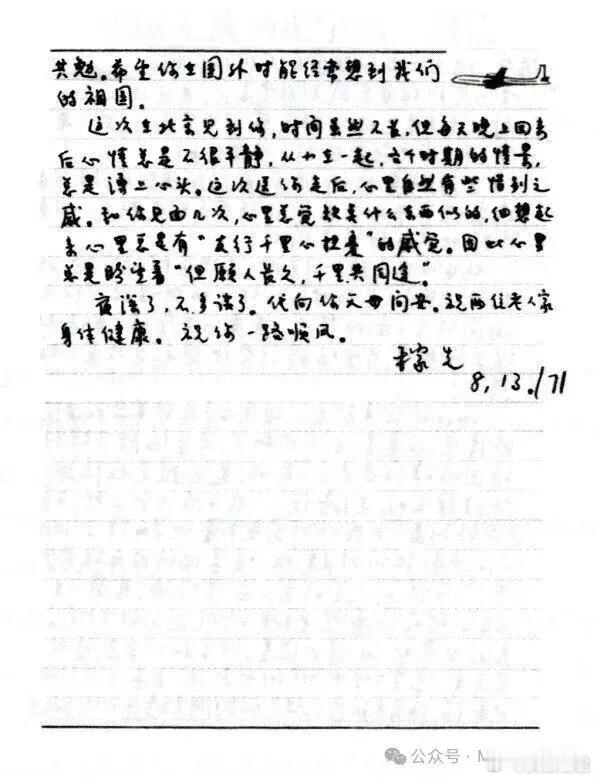 共勉。希望你在国外时能经常想到我们
的祖国。
这次在北京见到你,时间虽然不长,但每天晚上回来
后心情总是不很平静,从小在一起,各个时期的情景,
总是涌上心头。这次送你走后,心里自然有些惜别之
感。和你见面几次,心里总觉缺点什么东西似的,细想起
来心里总是有“友行千里心担忧”的感觉。因此心里
总是盼望着“但愿人长久,千里共同途”。
夜深了,不多谈了。代向你父母问安。祝两位老人家
身体健康。祝你一路顺风。
稼先
8,13./71
公众号·M